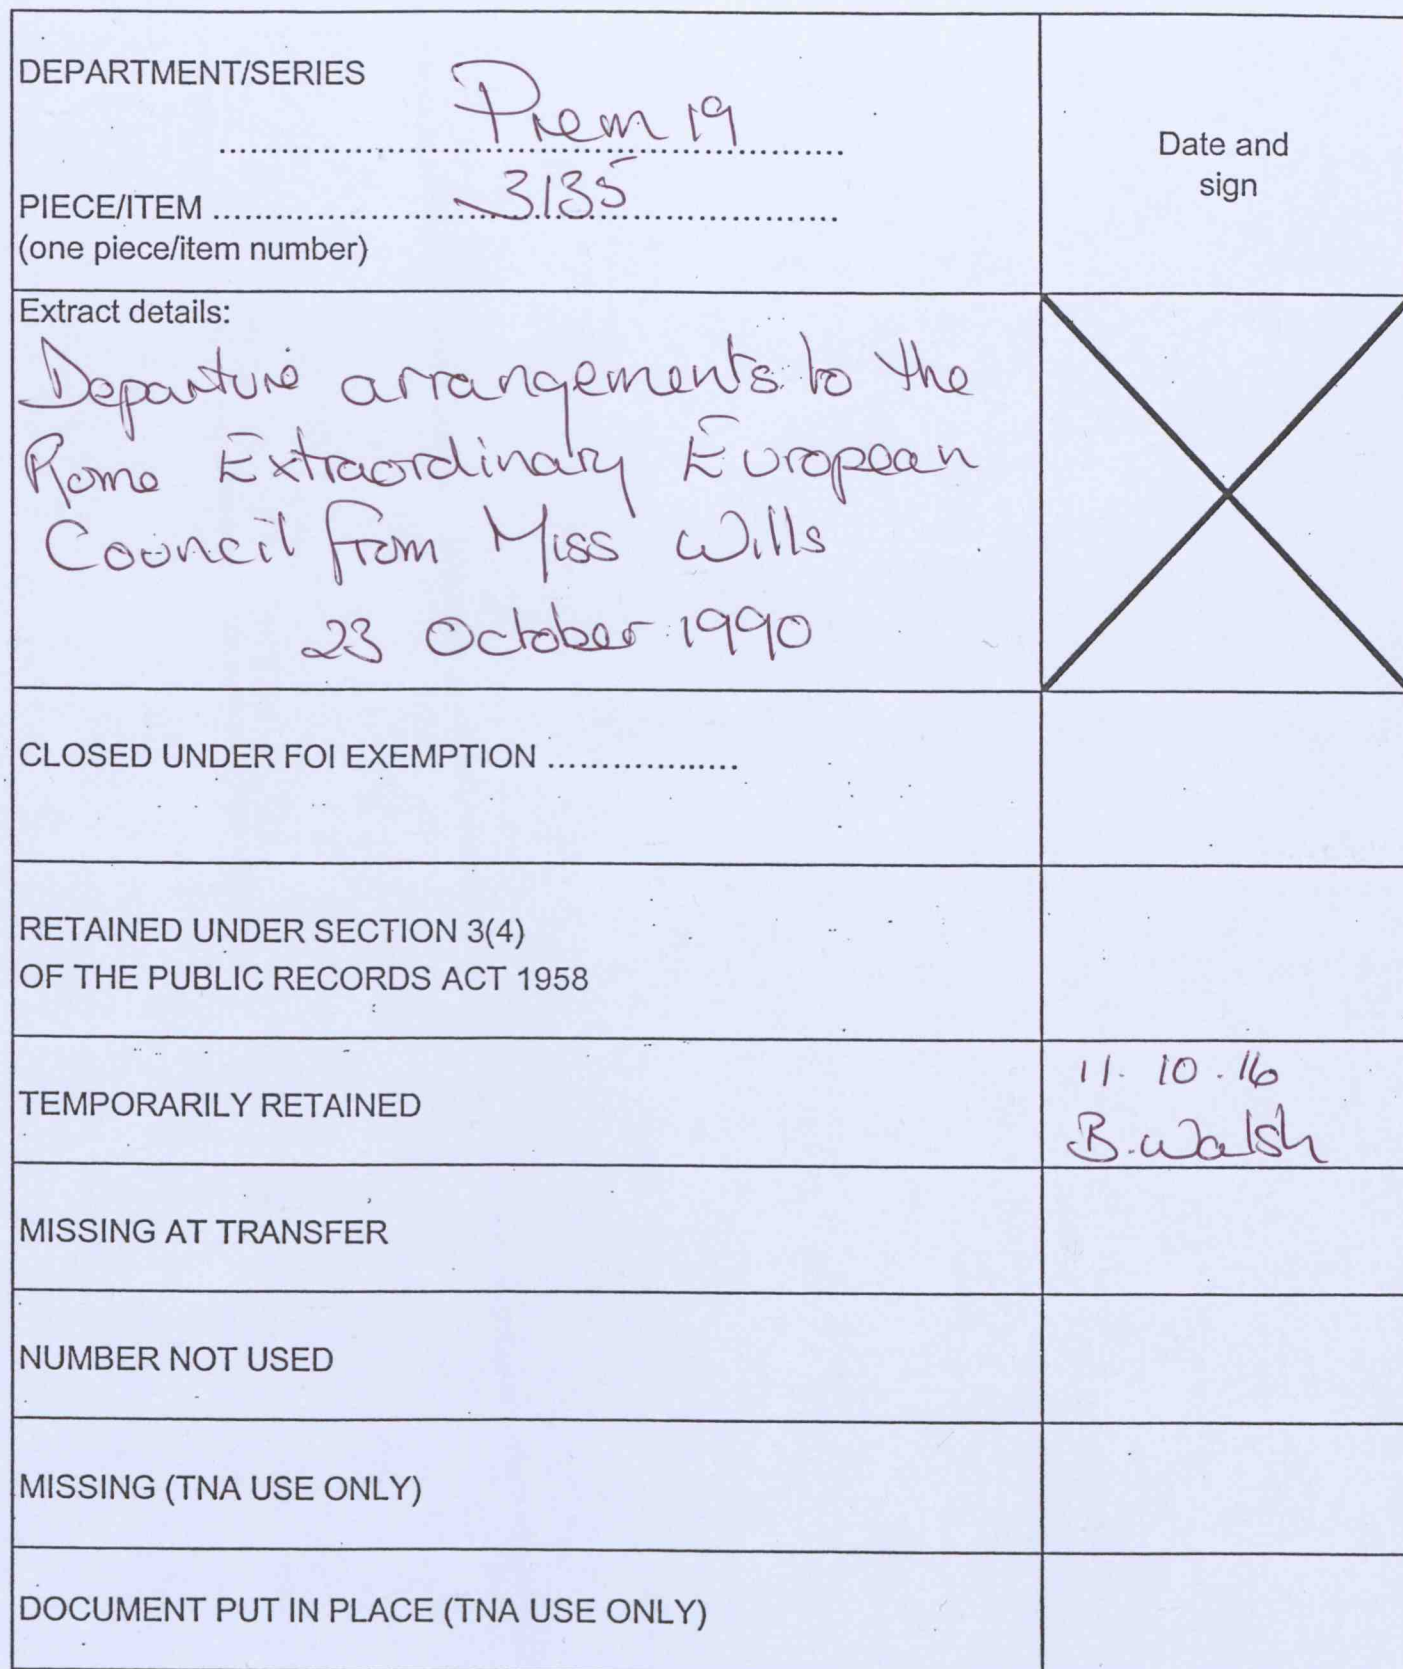 DEPARTMENT/SERIES
Prem 19
Date and
sign
PIECE/ITEM 3135
(one piece/item number)
Extract details:
Departure arrangements to the
Rome Extraordinary European
Council from Miss Wills
23 October 1990
CLOSED UNDER FOI EXEMPTION ..................
RETAINED UNDER SECTION 3(4)
OF THE PUBLIC RECORDS ACT 1958
TEMPORARILY RETAINED
11.10.16
B.Walsh
MISSING AT TRANSFER
NUMBER NOT USED
MISSING (TNA USE ONLY)
DOCUMENT PUT IN PLACE (TNA USE ONLY)